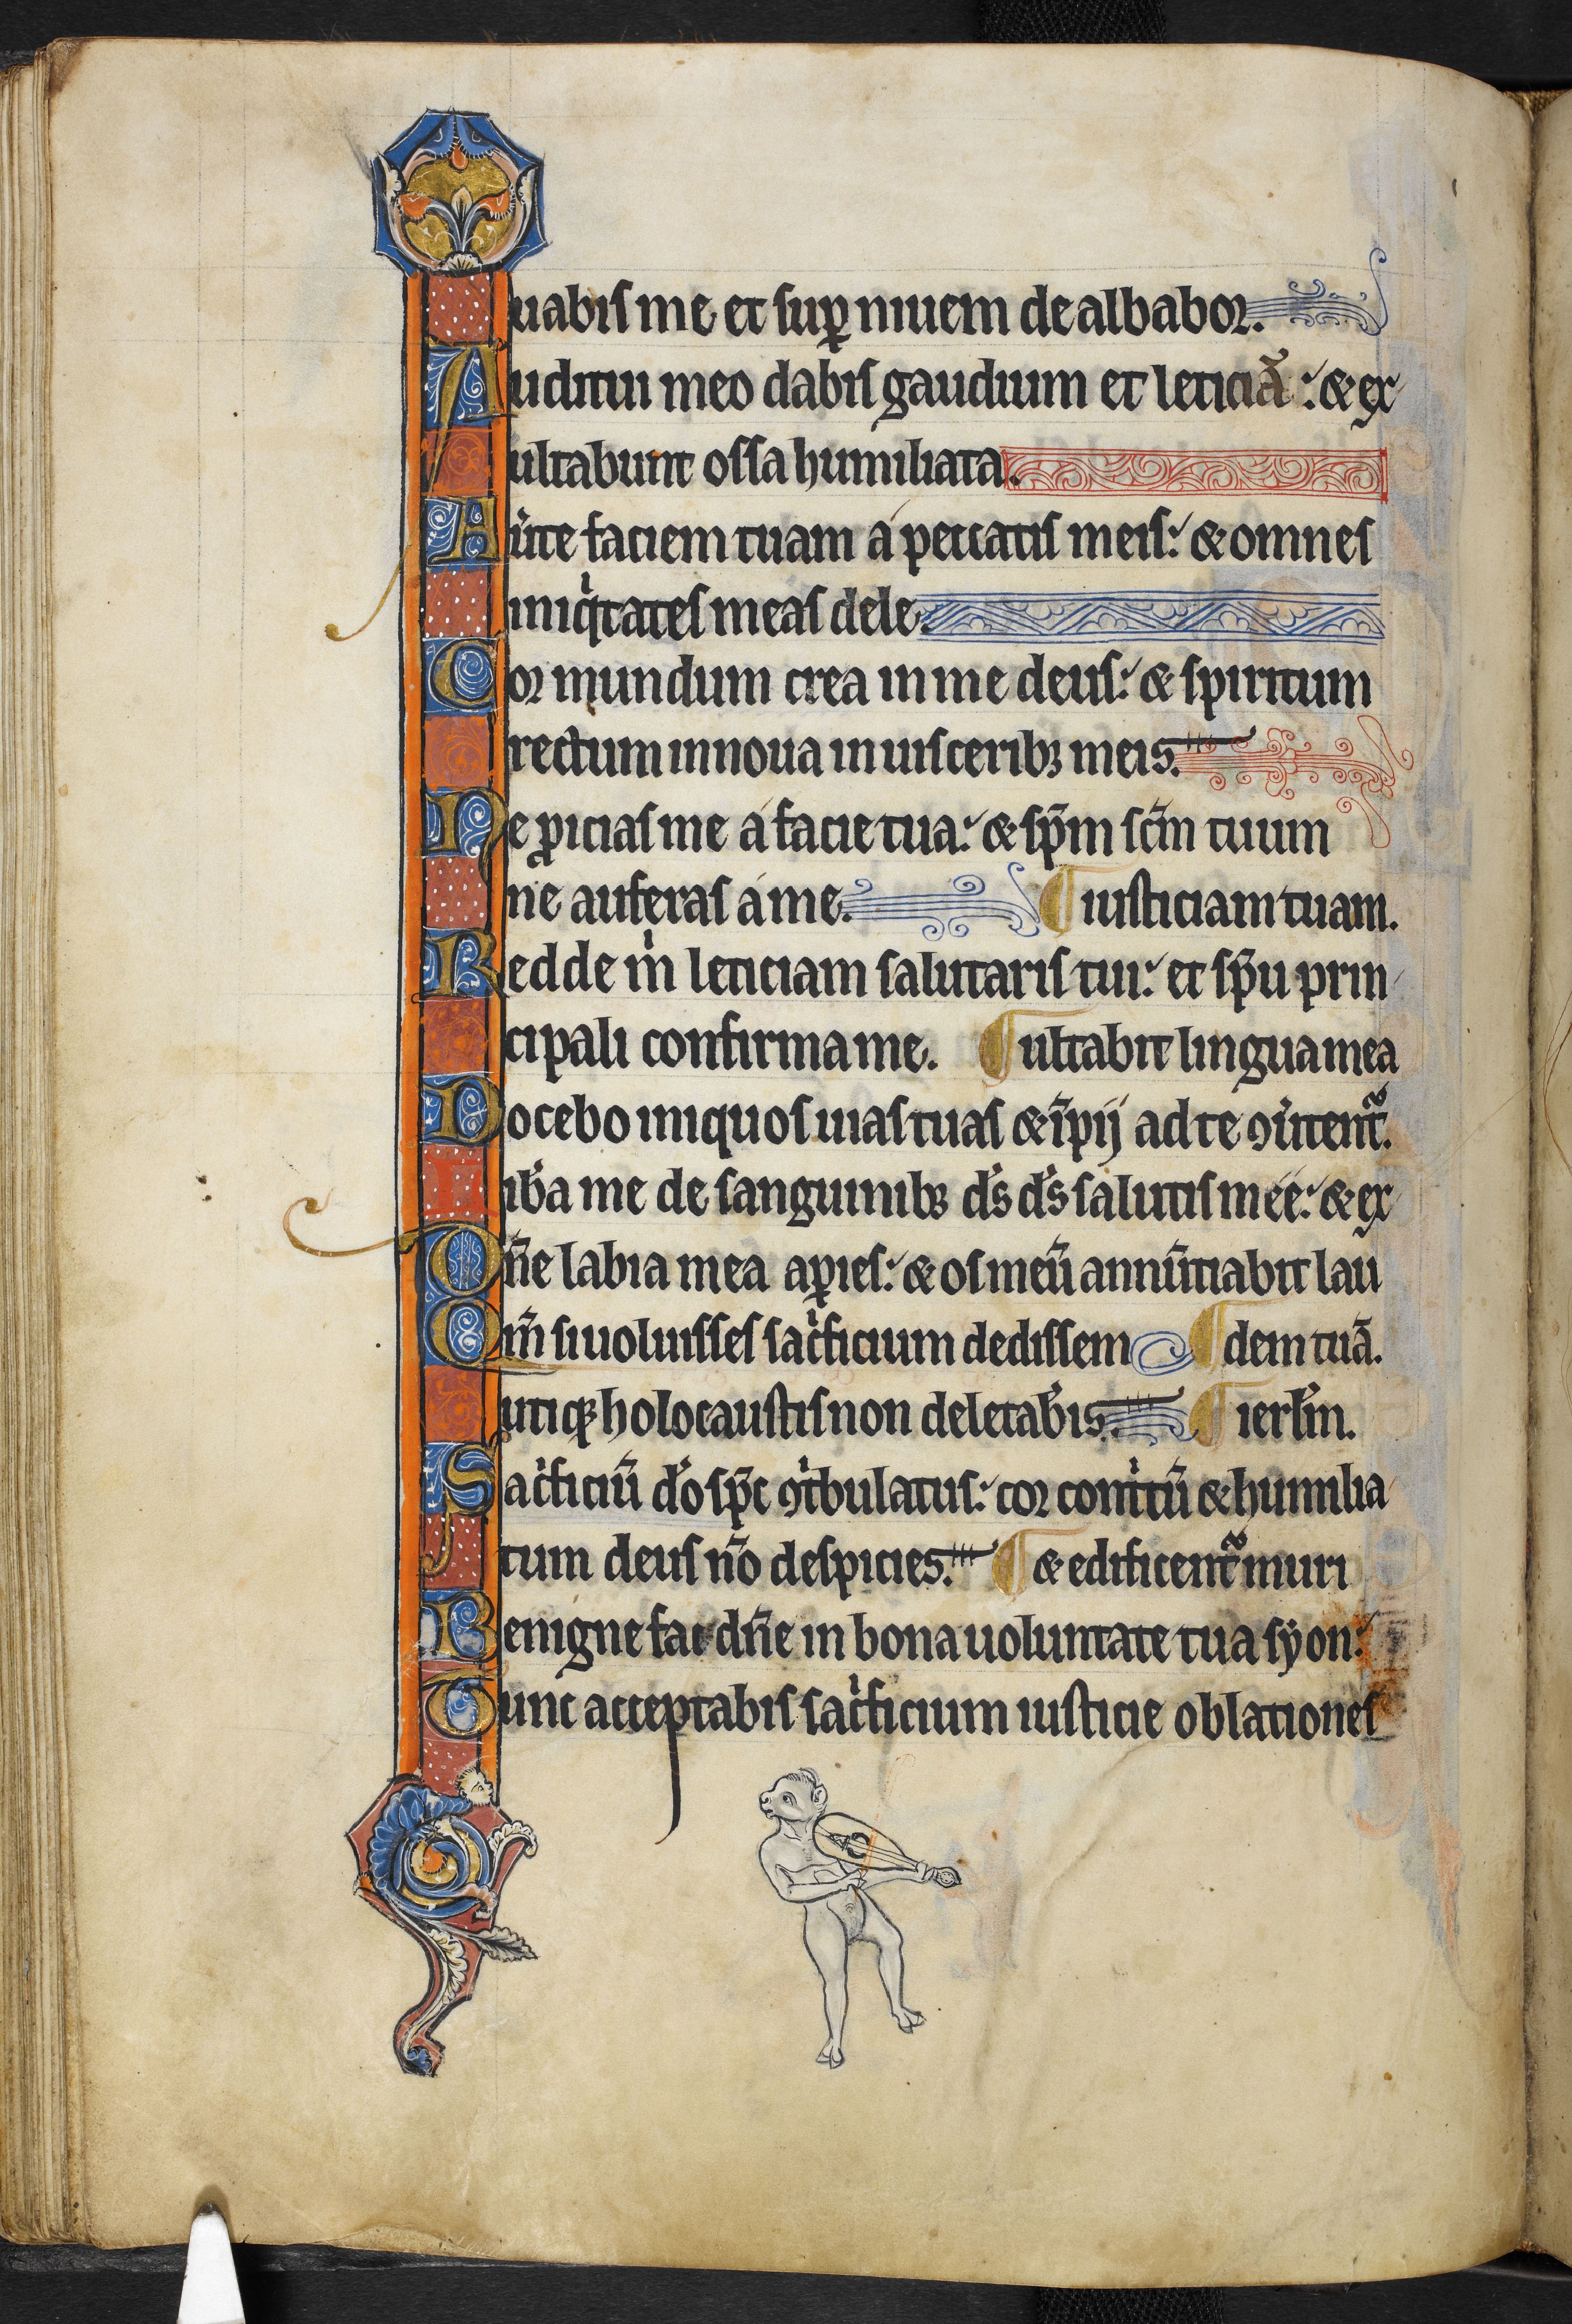 uabis me et sup̱ niuem dealbabor.
Auditui meo dabis gaudium et leticiā: & ex
ultabunt ossa humiliata.
Auͥte faciem tuam a peccatis meis: & omnes
iniqͥtates meas dele.
Cor mundum crea in me deus: & spiritum
rectum innoua in uisceribꝫ meis.
Ne ꝓicias me a facie tua: & sp̄m sc̄m tuum
ne auferas a me. ¶ iusticiam tuam.
Redde mͥ leticiam salutaris tui: et sp̄u prin
cipali confirma me. ¶ ultabit lingua mea
Docebo iniquos uias tuas & īpij ad te ꝯuͥtent᷑.
ib̓a me de sanguinibꝫ d̓s d̓s salutis mee: & ex
Dn̄e labia mea aꝑies: & os meū annūtiabit lau
Qm̄ si uoluisses sacͥficium dedissem ¶ dem tuā.
utiqꝫ holocaustis non delectab̓is. ¶ ierl̄m.
Sacͥficiū d̓o sp̄c ꝯtͥbulatus: cor contͥtū & humilia
tum deus nō despicies. ¶ & edificent᷑ muri
Benigne fac dn̄e in bona uoluntate tua syon:
Tunc acceptabis sacͥficium iusticie oblationes